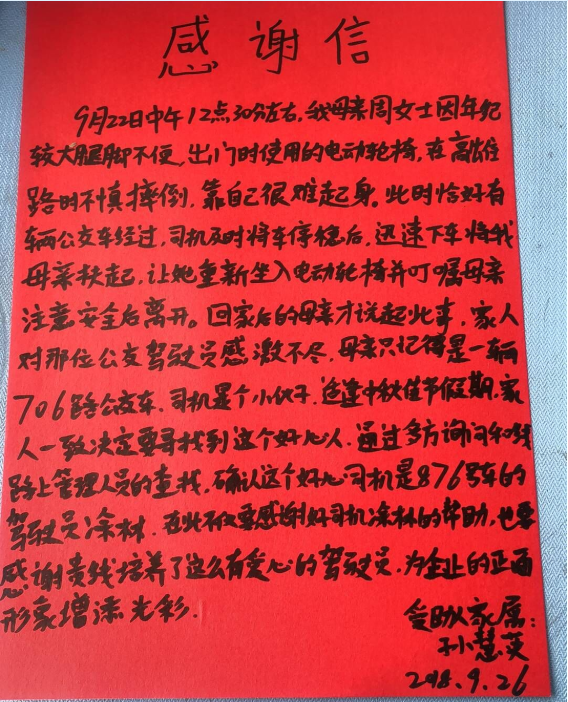 感谢信
9月22日中午12点30分左右,我母亲周女士因年纪
较大腿脚不便,出门时使用的电动轮椅,在高雄
路时不慎摔倒,靠自己很难起身。此时恰好有
辆公交车经过,司机及时将车停稳后,迅速下车将我
母亲扶起,让她重新坐入电动轮椅并叮嘱母亲
注意安全后离开。回家后的母亲才说起此事,家人
对那位公交驾驶员感激不尽,母亲只记得是一辆
706路公交车,司机是个小伙子,适逢中秋佳节假期,家
人一致决定要寻找到这个好心人,通过多方询问和线
路上管理人员的查找,确认这个好心司机是876号车的
驾驶员涂林,在此不仅要感谢好司机涂林的帮助,也要
感谢贵线培养了这么有爱心的驾驶员,为企业的正面
形象增添光彩.
受助人家属:
孙慧英
2018.9.26